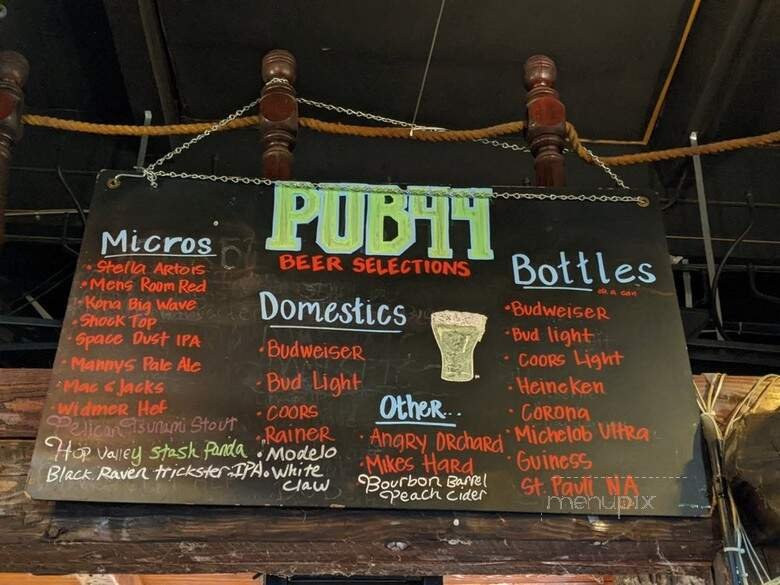 PUB44
BEER SELECTIONS
Micros
• Stella Artois
• Mens Room Red
• Kona Big Wave
• Shock Top
• Space Dust IPA
• Mannys Pale Ale
• Mac & Jacks
• Widmer Hef
Pelican Tsunami Stout
Hop Valley Stash Panda
Black Raven trickster IPA
Domestics
• Budweiser
• Bud Light
• Coors
• Rainer
• Modelo
• White
Claw
Other...
• Angry Orchard
• Mikes Hard
Bourbon Barrel
Peach Cider
Bottles
or a can
• Budweiser
• Bud light
• Coors Light
• Heineken
• Corona
• Michelob Ultra
• Guiness
St. Pauli NA
menupix